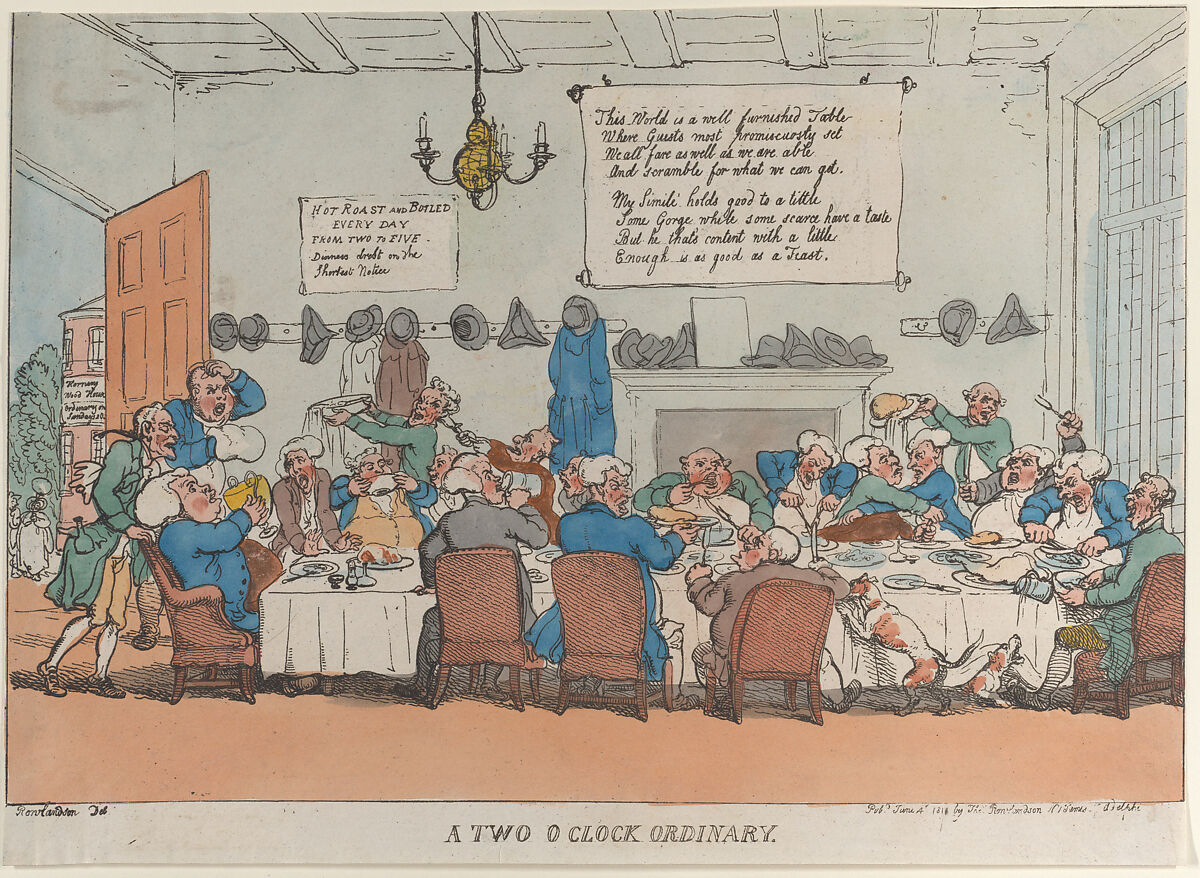 This World is a well furnished Table
Where Guests most promiscuosty set
We all fare as well as we are able
And scramble for what we can get.
My Simile holds good to a tittle
Some Gorge while some scarce have a taste
But he that's content with a little
Enough is as good as a Feast.
HOT ROAST AND BOILED
EVERY DAY
FROM TWO TO FIVE.
Dinners drest on the
Shortest Notice
Hornsey
Wood House
Ordinary on
Sundays
Rowlandson Del
Pub.d June 4th 1811 by Tho.s Rowlandson N 1 James Adelphi
A TWO O CLOCK ORDINARY.